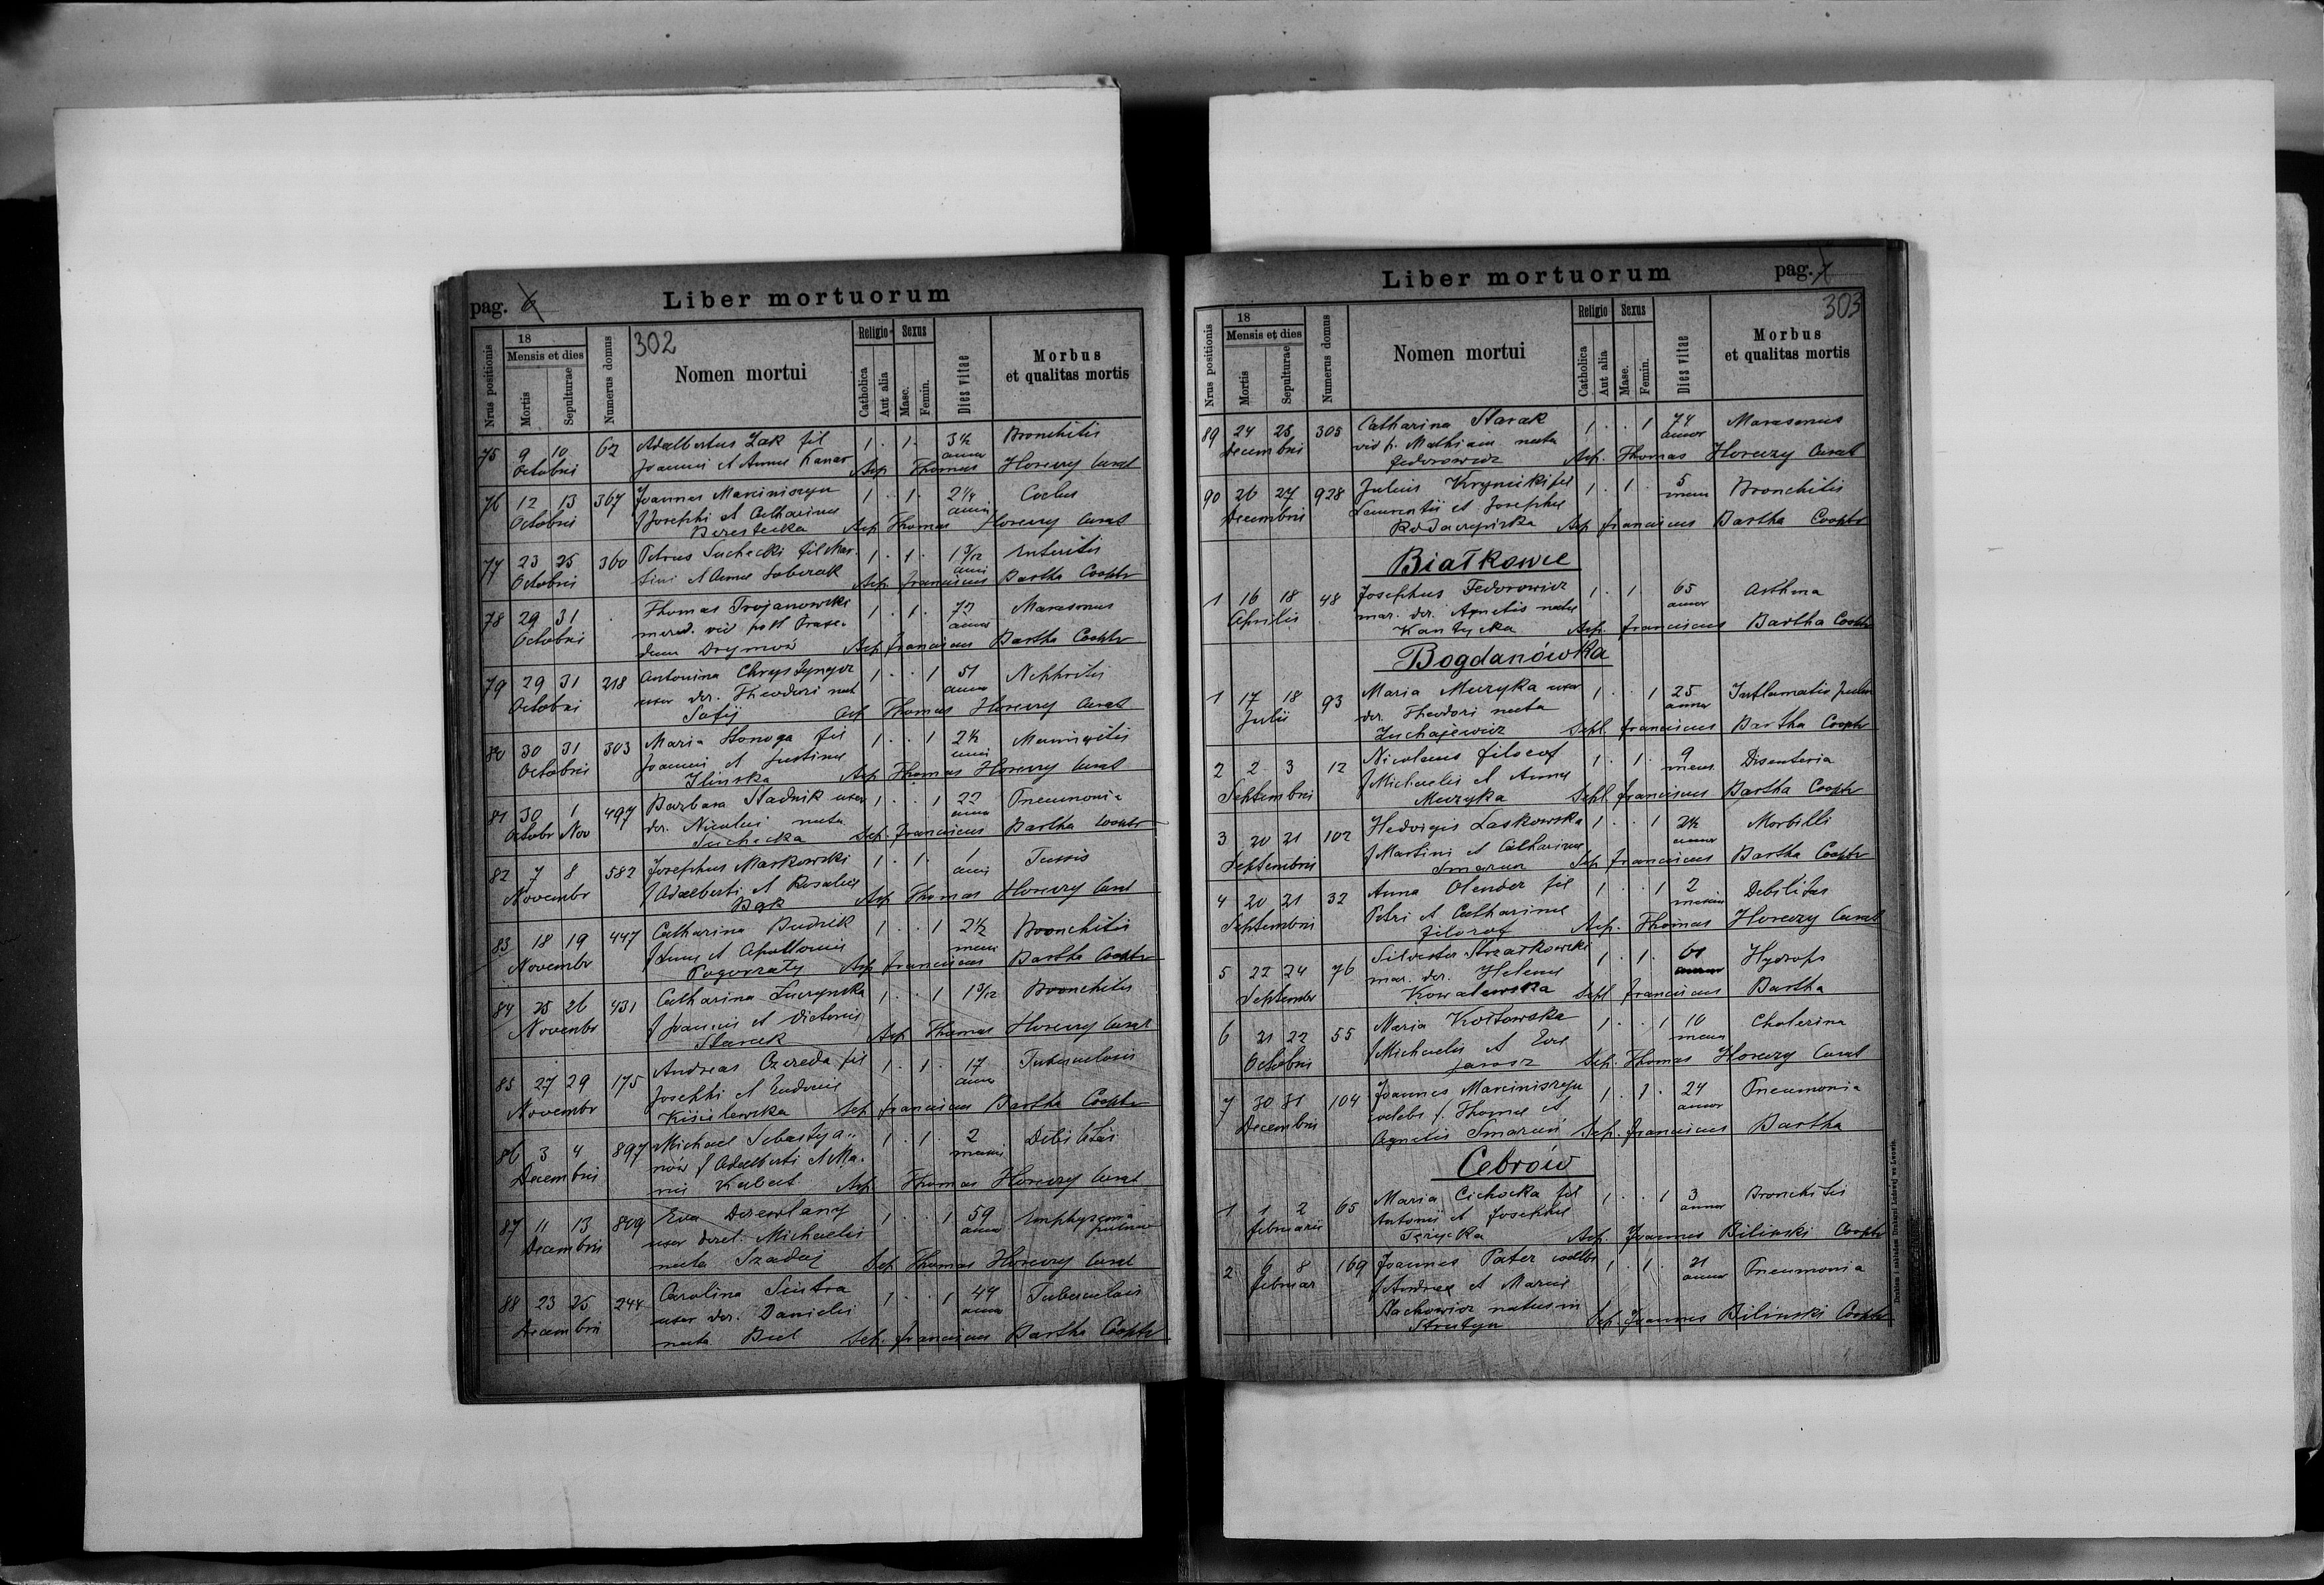 pag. 6
Liber mortuorum
302
Nrus positionis
18
Mensis et dies
Mortis
Sepulturae
Numerus domus
Nomen mortui
Religio
Catholica
Aut alia
Sexus
Masc.
Femin.
Dies vitae
Morbus
et qualitas mortis
75 9 10 62 Adalbertus Żak fil 1 . 1 . 3½ Bronchitis
Octobris Joannis et Annae annor
Sep Thomas Horeczy Curat
76 12 13 367 Joannes Marciniszyn 1 . 1 . 2¼
Octobris f Josephi et Catharinae
Berestecka Sep Thomas Horeczy Curat
77 23 25 360 Petrus Suchecki fil Mar. 1 . 1 . Enteritis
Octobris tini et Annae Soberak Sep. Franciscus Bartha Cooptr
78 29 31 . Thomas Trojanowski 1 . 1 . 72 Marasmus
Octobris vid post Praxe. annor
dem Drymów Sep Franciscus Bartha Cooptr
79 29 31 218 Antonina 1 . . 1 51 Nephritis
Octobris uxor der. Theodori nat
Sep Thomas Horeczy Curat
80 30 31 303 Maria Honoga fil 1 . . 1 2½ Meningitis
Octobris Joannis et Justinae
Ilinska Sep Thomas Horeczy Curat
81 30 1 497 Barbara Stadnik uxor 1 . . 1 22 Pneumonia
Octobr Nov der. Nicolai nata
Suchecka Sep. Franciscus Bartha Cooptr
82 7 8 582 Josephus Markowski 1 . 1 . 1 Tussis
Novembr f Adalberti et Rosaliae anni
Bąk Sep Thomas Horeczy Curat
83 18 19 447 Catharina Budnik 1 . . 1 2½ Bronchitis
Novembr f et Apolloniae mens
Sep Franciscus Bartha Cooptr
84 25 26 431 Catharina Luczynska 1 . . 1 Bronchitis
Novembr f Joannis et Victoriae
Slarek Sep Thomas Horeczy Curat
85 27 29 175 Andreas Czereda fil 1 . 1 . 17 Tuberculosis
Novembr Josephi et Eudociae annor
Kisilewska Sep Franciscus Bartha Cooptr
86 3 4 897 Michael Sebastya. 1 . 1 2 Debilitas
Decembris nów f Adalberti et Ma. mensis
riae Kubat Sep Thomas Horeczy Curat
87 11 13 849 Eva Derewlany 1 . . 1 59 Emphysema
Decembris uxor derel. Michaelis annor pulmon
nata Szadaj Sep Thomas Horeczy Curat
88 23 25 244 Carolina 1 . . 1 44 Tuberculosis
Decembris uxor der. Danielis annor
nata Biel Sep. Franciscus Bartha Cooptr
Liber mortuorum
pag. 7
303
Nrus positionis
18
Mensis et dies
Mortis
Sepulturae
Numerus domus
Nomen mortui
Religio
Catholica
Aut alia
Sexus
Masc.
Femin.
Dies vitae
Morbus
et qualitas mortis
89 24 25 305 Catharina Slarek 1 . . 1 74 Marasmus
Decembris vid p. Mathiam nata annor
Fedorowicz Sep. Thomas Horeczy Curat
90 26 27 928 Julius Krynicki fil 1 . 1 . 5 Bronchitis
Decembris Laurentii et Josephae mens
Sep Franciscus Bartha Cooptr
Białkowce
1 16 18 48 Josephus Fedorowicz 1 . 1 . 65 Asthma
Aprilis mar. der. Agnetis natae annor
Kantycka Sep. Franciscus Bartha Cooptr
Bogdanówka
1 17 18 93 Maria Muzyka uxor 1 . . 1 25 Inflamatio pulm
Julii der. Theodori nata annor
Suchajewicz Sepl. Franciscus Bartha Cooptr
2 2 3 12 Nicolaus Filozof 1 . 1 . 9 Disenteria
Septembris f Michaelis et Annae mens
Muzyka Sepl. Franciscus Bartha Cooptr
3 20 21 102 Hedvigis Laskowska 1 . . 1 2½ Morbilli
Septembris f Martini et Catharinae annor
Smarun Sep Franciscus Bartha Cooptr
4 20 21 32 Anna Olender fil 1 . . 1 2 Debilitas
Septembris Petri et Catharinae mensis
Filozof Sep. Thomas Horeczy Curat
5 22 24 76 Silvester Strzałkowski 1 . 1 . 61 Hydrops
Septembr mar. der. Helenae annor
Kowalewska Sepl Franciscus Bartha
6 21 22 55 Maria Kozłowska 1 . . 1 10 Cholerina
Octobris f Michaelis et Evae mens
Jarosz Sep. Thomas Horeczy Curat
7 30 31 104 Joannes Marciniszyn 1 . 1 . 24 Pneumonia
Decembris coelebs f. Thomae et annor
Agnetis Smaruń Sep. Franciscus Bartha
Cebrów
1 1 2 65 Maria Cichocka fil 1 . . 1 3 Bronchitis
Februarii Antonii et Josephae annor
Sep Joannes Bilinski Cooptr
2 6 8 169 Joannes Pater coelbs 1 . 1 . 21 Pneumonia
Februar f Andreae et Mariae annor
Stachowicz natus in
Strutyn Sep. Joannes Bilinski Cooptr